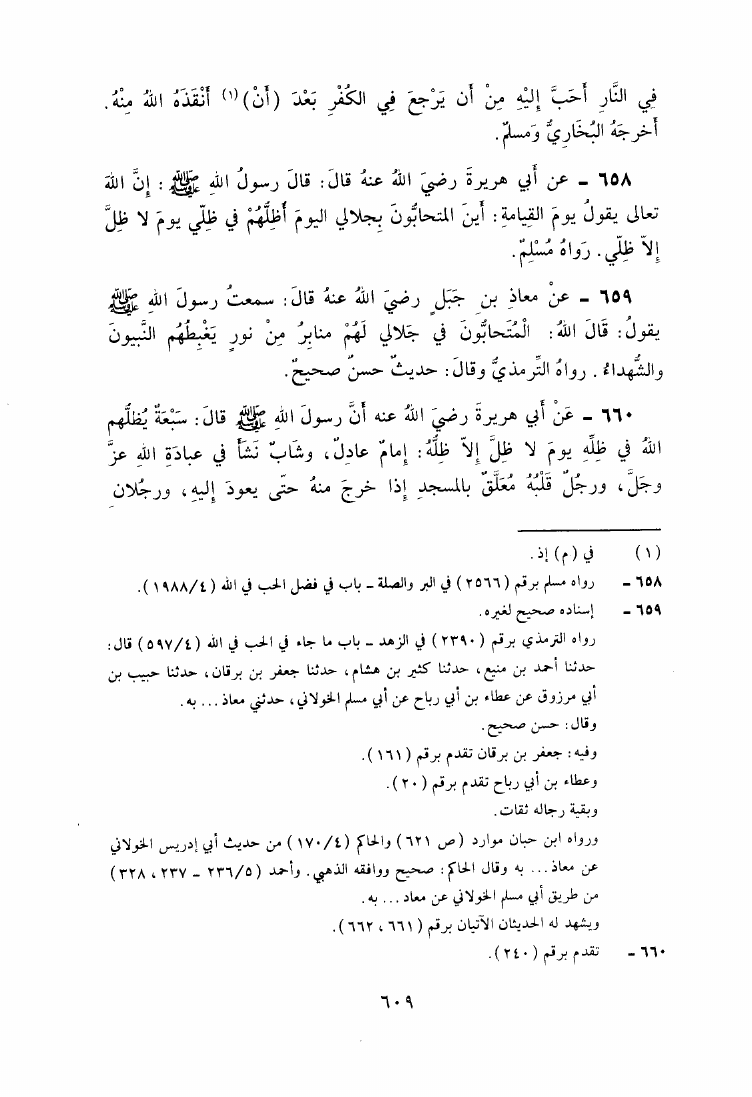 فِي النَّارِ أَحَبَّ إِلَيْهِ مِنْ أَن يَرْجعَ فِي الكُفْرِ بَعْدَ (أَنْ)(١) أَنْقَذَهُ اللهُ مِنْهُ.
أَخرجَهُ البُخَارِيُّ وَمسلمٌ.
٦٥٨ - عن أَبي هريرةَ رضيَ اللهُ عنهُ قالَ: قالَ رسولُ اللهِ ﷺ: إِنَّ اللهَ
تعالى يقولُ يومَ القِيامةِ: أَينَ المتحابُّونَ بِجلالي اليومَ أُظلُّهُمْ في ظلِّي يومَ لا ظِلَّ
إِلاَّ ظلِّي. رَواهُ مُسْلِمٌ.
٦٥٩ - عنْ معاذِ بنِ جَبَلٍ رضيَ اللهُ عنهُ قالَ: سمعتُ رسولَ اللهِ ﷺ
يقولُ: قَالَ اللهُ: الْمُتَحابُّونَ في جَلالي لَهُمْ منابرُ مِنْ نورٍ يَغْبِطُهُم النَّبيونَ
والشُّهداءُ. رواهُ التِّرمذيُّ وقالَ: حديثٌ حسنٌ صحيحٌ.
٦٦٠ - عَنْ أَبي هريرةَ رضيَ اللهُ عنه أَنَّ رسولَ اللهِ ﷺ قالَ: سَبْعَةٌ يُظلُّهم
اللهُ في ظلِّهِ يومَ لا ظلَّ إِلاَّ ظلُّهُ: إِمامٌ عادِلٌ، وشَابٌ نَشَأَ في عبادَةِ اللهِ عزَّ
وجَلَّ، ورجُلٌ قَلْبُهُ مُعَلَّقٌ بالمسجدِ إِذا خرجَ منهُ حتَّى يعودَ إِليهِ، ورجُلانِ
(١) في (م) إذ.
٦٥٨ - رواه مسلم برقم (٢٥٦٦) في البر والصلة - باب في فضل الحب في الله (١٩٨٨/٤).
٦٥٩ - إسناده صحيح لغيره.
رواه الترمذي برقم (٢٣٩٠) في الزهد - باب ما جاء في الحب في الله (٥٩٧/٤) قال:
حدثنا أحمد بن منيع، حدثنا كثير بن هشام، حدثنا جعفر بن برقان، حدثنا حبيب بن
أبي مرزوق عن عطاء بن أبي رباح عن أبي مسلم الخولاني، حدثني معاذ... به.
وقال: حسن صحيح.
وفيه: جعفر بن برقان تقدم برقم (١٦١).
وعطاء بن أبي رباح تقدم برقم (٢٠).
وبقية رجاله ثقات.
ورواه ابن حبان موارد (ص ٦٢١) والحاكم (١٧٠/٤) من حديث أبي إدريس الخولاني
عن معاذ... به وقال الحاكم: صحيح ووافقه الذهبي. وأحمد (٢٣٦/٥ - ٢٣٧، ٣٢٨)
من طريق أبي مسلم الخولاني عن معاد... به.
ويشهد له الحديثان الآتيان برقم (٦٦١، ٦٦٢).
٦٦٠ - تقدم برقم (٢٤٠).
٦٠٩